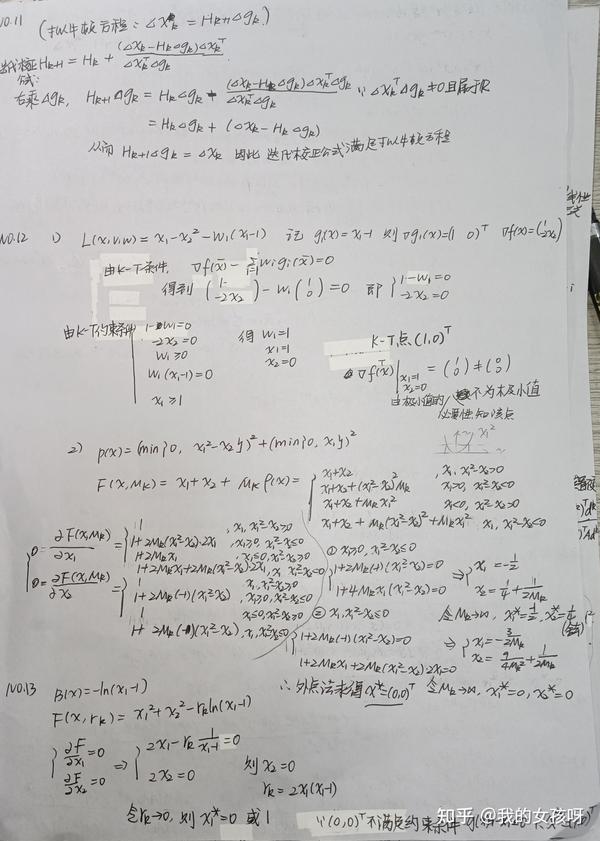 NO.11 (拟牛顿方程: Δx_k = H_{k+1}Δg_k.)
迭代校正 H_{k+1} = H_k + (Δx_k - H_kΔg_k)Δx_k^T / Δx_k^TΔg_k
右乘Δg_k, H_{k+1}Δg_k = H_kΔg_k + (Δx_k - H_kΔg_k)Δx_k^TΔg_k / Δx_k^TΔg_k ∵ Δx_k^TΔg_k ≠ 0 且属于R
= H_kΔg_k + (Δx_k - H_kΔg_k)
从而 H_{k+1}Δg_k = Δx_k 因此 迭代校正公式满足拟牛顿方程
NO.12 1) L(x,v,w) = x_1 - x_2^2 - w_1(x_1-1) 记 g_1(x) = x_1-1 则 ∇g_1(x) = (1 0)^T ∇f(x) = (1 -2x_2)
由K-T条件, ∇f(x̄) - Σ w_i g_i(x̄) = 0
得到 (1 -2x_2) - w_1(1 0) = 0 即 { 1-w_1=0
-2x_2=0
由K-T约束条件 1-w_1=0
-2x_2=0
w_1≥0
w_1(x_1-1)=0
x_1≥1
得 w_1=1
x_1=1
x_2=0
K-T点(1,0)^T
∇f(x̄)|x_1=1 x_2=0 = (1 0) ≠ (0 0)
不为极小值
必要性知该点
2) p(x) = (min{0, x_1^2-x_2})^2 + (min{0, x_1})^2
F(x,M_k) = x_1+x_2+M_k p(x) =
x_1+x_2 , x_1, x_1^2-x_2>0
x_1+x_2+(x_1^2-x_2)^2M_k x_1>0, x_1^2-x_2≤0
x_1+x_2+M_kx_1^2 x_1<0, x_1^2-x_2>0
x_1+x_2+M_k(x_1^2-x_2)^2+M_kx_1^2 x_1, x_1^2-x_2≤0
0 = ∂F(x,M_k)/∂x_1 =
1 , x_1, x_1^2-x_2≥0
1+2M_k(x_1^2-x_2)·2x_1 , x_1≥0, x_1^2-x_2≤0
1+2M_kx_1 , x_1≤0, x_1^2-x_2≥0
1+2M_kx_1+2M_k(x_1^2-x_2)·2x_1, x_1, x_1^2-x_2≤0
0 = ∂F(x,M_k)/∂x_2 =
1 , x_1, x_1^2-x_2≥0
1+2M_k(-1)(x_1^2-x_2) , x_1≥0, x_1^2-x_2≤0
1 x_1≤0, x_1^2-x_2≥0
1+2M_k(-1)(x_1^2-x_2), x_1, x_1^2-x_2≤0
① x_1≥0, x_1^2-x_2≤0
1+2M_k(-1)(x_1^2-x_2)=0
1+4M_kx_1(x_1^2-x_2)=0
⇒ x_1=-1/2
x_2=1/4+1/2M_k
令M_k→∞, x_1^*=-1/2, x_2^*=1/4
(舍)
② x_1, x_1^2-x_2≤0
1+2M_k(-1)(x_1^2-x_2)=0
1+2M_kx_1+2M_k(x_1^2-x_2)2x_1=0
⇒ x_1=-3/2M_k
x_2=9/4M_k^2+1/2M_k
∴ 外点法求得 x^*=(0,0)^T 令M_k→∞, x_1^*=0, x_2^*=0
NO.13 B(x) = -ln(x_1-1)
F(x,r_k) = x_1^2+x_2^2-r_kln(x_1-1)
∂F/∂x_1=0
∂F/∂x_2=0
⇒ 2x_1-r_k 1/(x_1-1)=0
2x_2=0
则 x_2=0
r_k=2x_1(x_1-1)
令r_k→0, 则 x_1^*=0 或 1
∵(0,0)^T不满足约束条件
知乎 @我的女孩呀